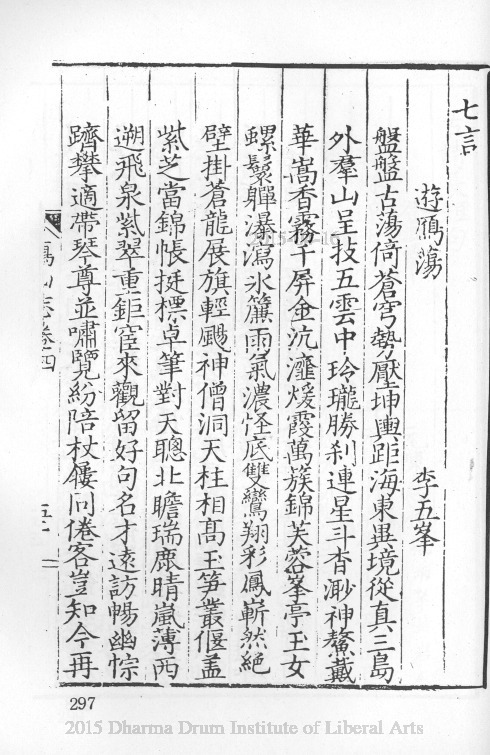 七言
遊鴈蕩 李五峯
盤盤古蕩倚蒼穹勢壓坤輿距海東異境從真三島
外羣山呈技五雲中玲瓏勝刹連星斗杳渺神鰲戴
華嵩香霧千屏金沆瀣煖霞萬簇錦芙蓉峯亭玉女
螺鬟嚲瀑瀉氷簾雨氣濃怪底雙鸞翔彩鳳嶄然絕
壁掛蒼龍展旗輕颺神僧洞天柱相高玉笋叢偃盖
紫芝當錦帳挺標卓筆對天聰北瞻瑞鹿晴嵐薄西
遡飛泉紫翠重鉅宦來觀留好句名才遠訪暢幽悰
躋攀適帶琴尊並嘯覽紛陪杖屨同倦客豈知今再
鴈山志卷四
297
2015 Dharma Drum Institute of Liberal Arts